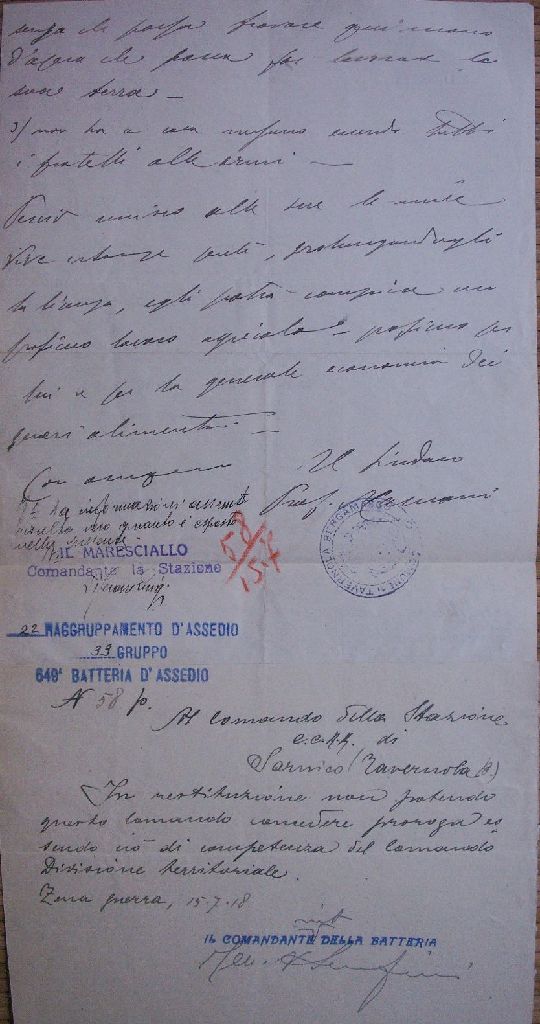 senza che possa trovare
d'opera che possa far lavorare la
sua terra –
3) non ha a casa nessuno essendo tutti
i fratelli alle armi –
Perciò unisco alle sue le mie
vive istanze perchè, prolungandogli
la licenza, egli potrà compiere un
proficuo lavoro agricolo – proficuo per
lui e per la generale economia dei
generi alimentari. –
Con ossequio
Il Sindaco
Prof.
Da informazioni assunte
risulta vero quanto è esposto
nella presente.
IL MARESCIALLO
Comandante la Stazione
58
15-7
TAVERNOLA BERGAMASCA
22 RAGGRUPPAMENTO D'ASSEDIO
33 GRUPPO
649ª BATTERIA D'ASSEDIO
N 58 p.
Al Comando della Stazione
C.C.R.R. di
Sarnico (Tavernola B)
In restituzione non potendo
questo Comando concedere proroga es
sendo ciò di competenza del Comando
Divisione territoriale.
Zona guerra, 15-7-18
IL COMANDANTE DELLA BATTERIA